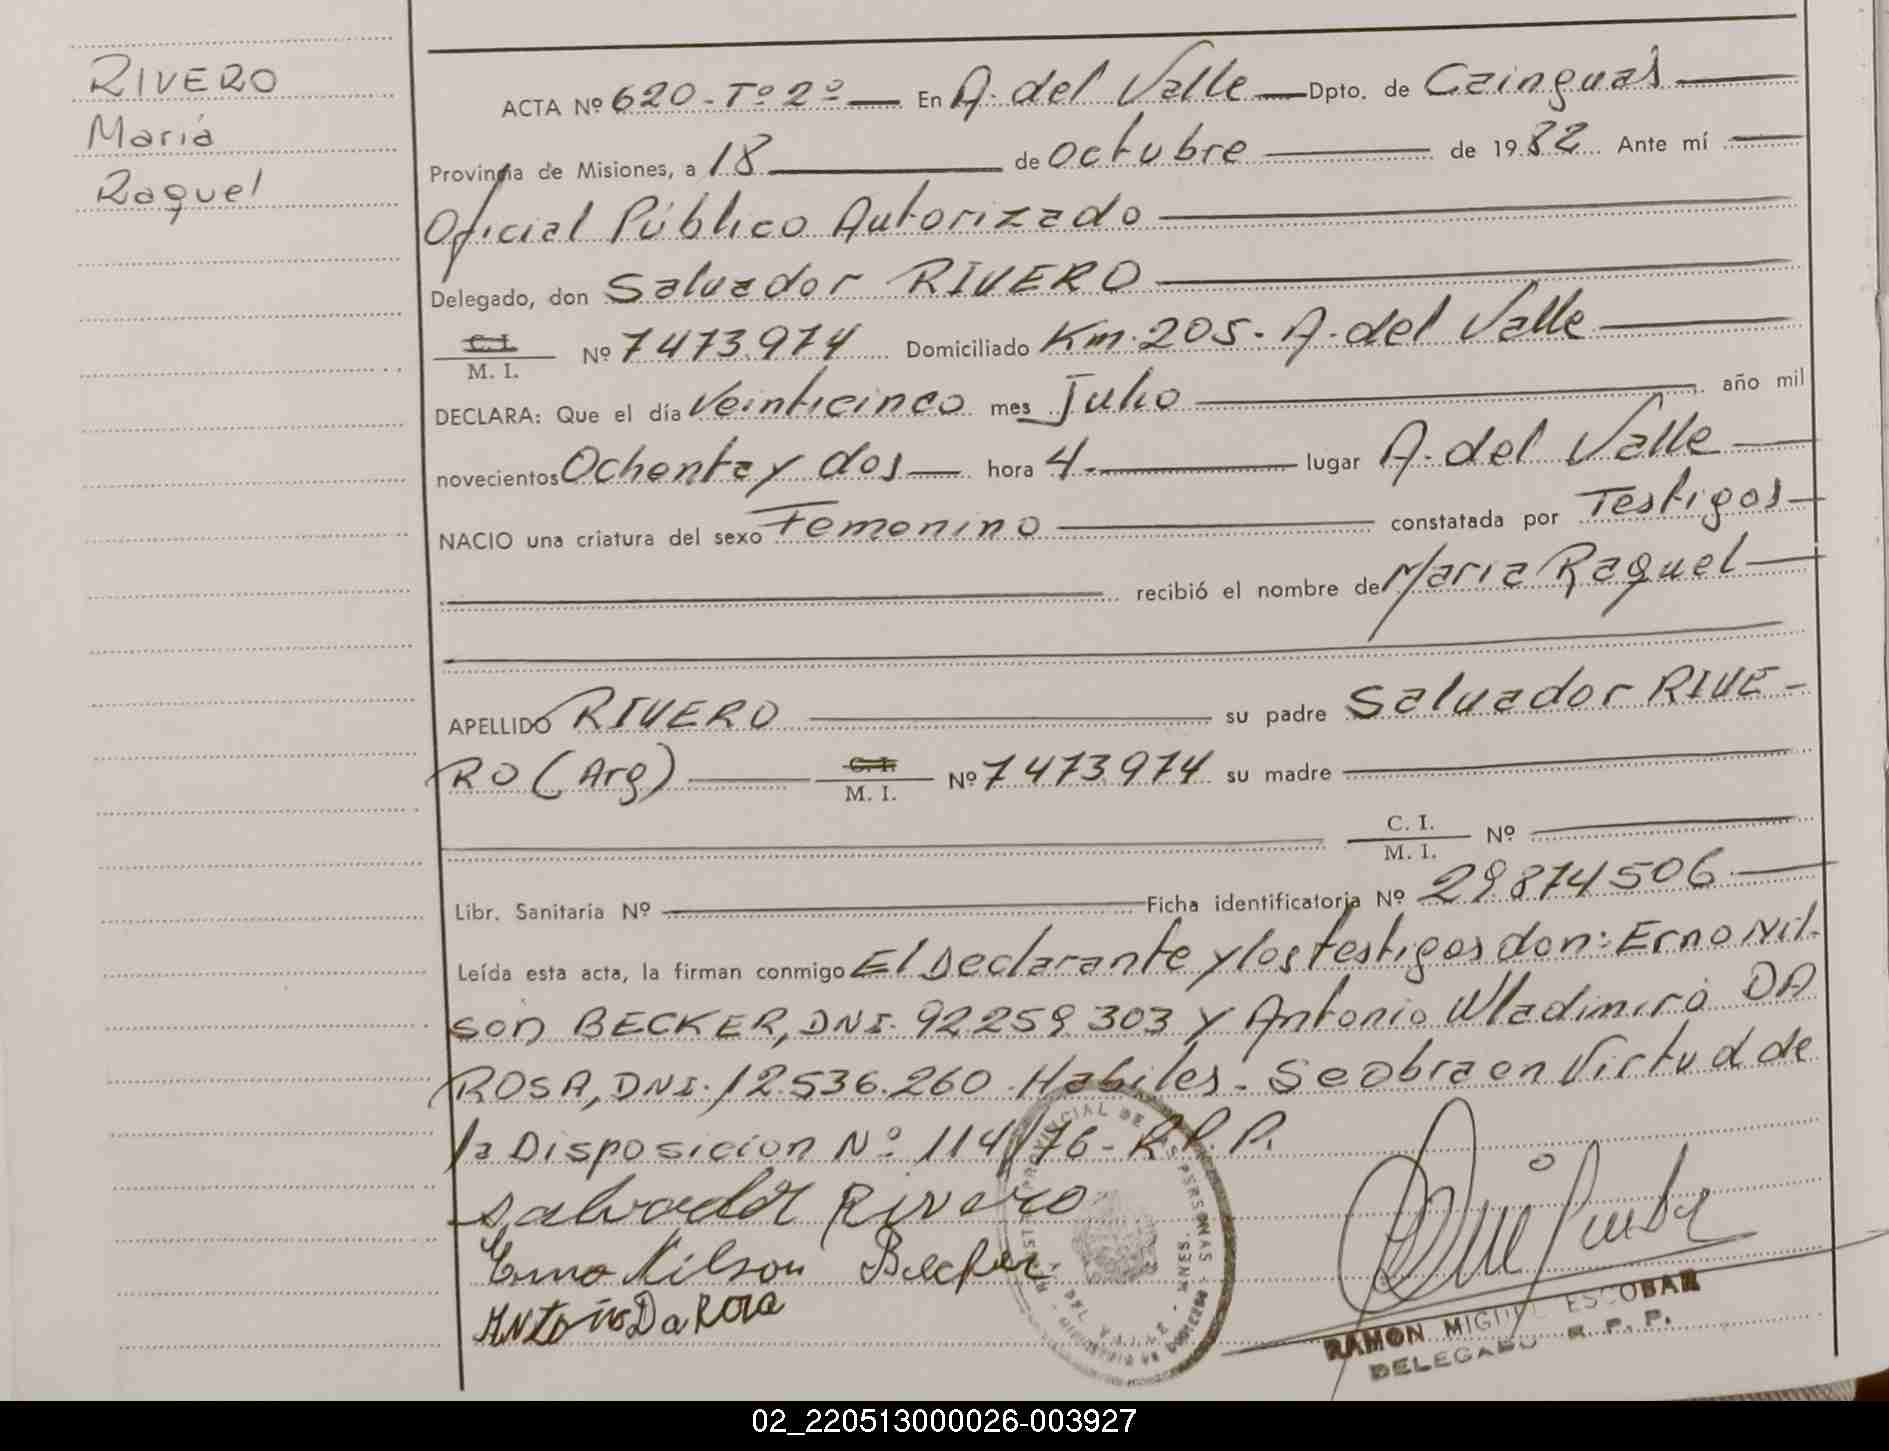 RIVERO
Maria
Raquel
ACTA Nº 620-Tº 2º En A. del Valle Dpto. de Cainguas
Provincia de Misiones, a 18 de octubre de 1982 Ante mí
Oficial Público Autorizado
Delegado, don Salvador RIVERO
C.I.
M. I. Nº 7473974 Domiciliado Km. 205- A. del Valle
DECLARA: Que el día Veinticinco mes Julio año mil
novecientos Ochenta y dos hora 4 lugar A. del Valle
NACIO una criatura del sexo Femenino constatada por Testigos
recibió el nombre de Maria Raquel
APELLIDO RIVERO su padre Salvador RIVE-
RO (Arg) C. I.
M. I. Nº 7473974 su madre
C. I.
M. I. Nº
Libr. Sanitaria Nº Ficha identificatoria Nº 29874506
Leída esta acta, la firman conmigo El Declarante y los testigos don: Erno Nil-
son BECKER, DNI. 92259303 y Antonio Wladimiro DA
ROSA, DNI. 12.536.260. Habiles. Se obra en Virtud de
la Disposicion Nº 114/76- R.P.P.
Salvador Rivero
Erno Nilson Becker
Antonio Da Rosa
PROVINCIAL DE LAS PERSONAS
DEL VALLE - MNES.
RAMON MIGUEL ESCOBAR
DELEGADO R. P. P.
02_220513000026-003927